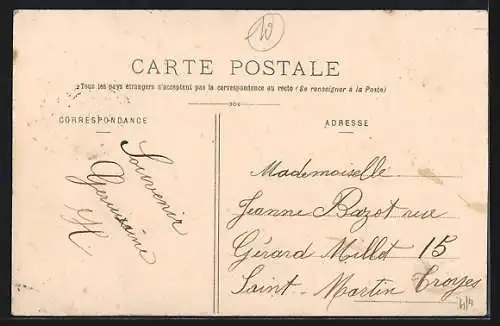 10
CARTE POSTALE
Tous les pays étrangers n'acceptent pas la correspondance au recto (Se renseigner à la Poste)
CORRESPONDANCE
Souvenir
Germaine
H
ADRESSE
Mademoiselle
Jeanne Bazot rue
Gérard Millot 15
Saint-Martin Troyes